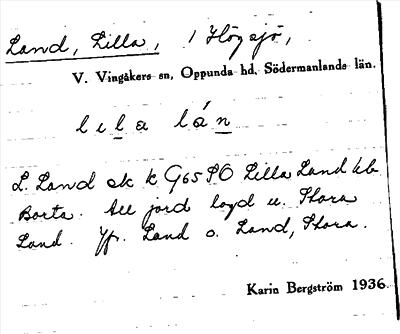 Land, Lilla, / Högsjö,
V. Vingåkers sn, Oppunda hd, Södermanlands län.
lila lán
L. Land ek k G65SO Lilla Land kb
Borta. All jord lagd u. Stora
Land. Jfr. Land o. Land, Stora.
Karin Bergström 1936.